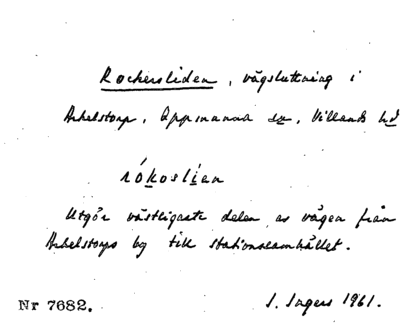 Rockersliden, vägsluttning i
Arkelstorp, Oppmanna sn, Villands hd
rókoslíen
Utgör västligaste delen av vägen från
Arkelstorps by till stationssamhället.
Nr 7682. I. Ingers 1961.